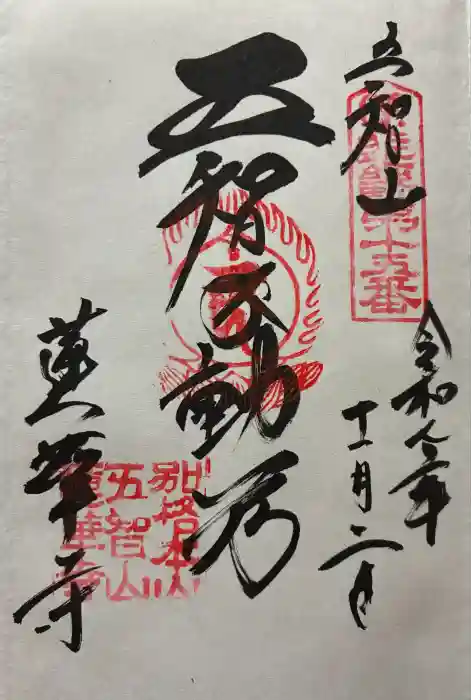 五智山
第十五番
令和元年
十一月二日
五智不動尊
別格本山
五智山
蓮華寺
蓮華寺